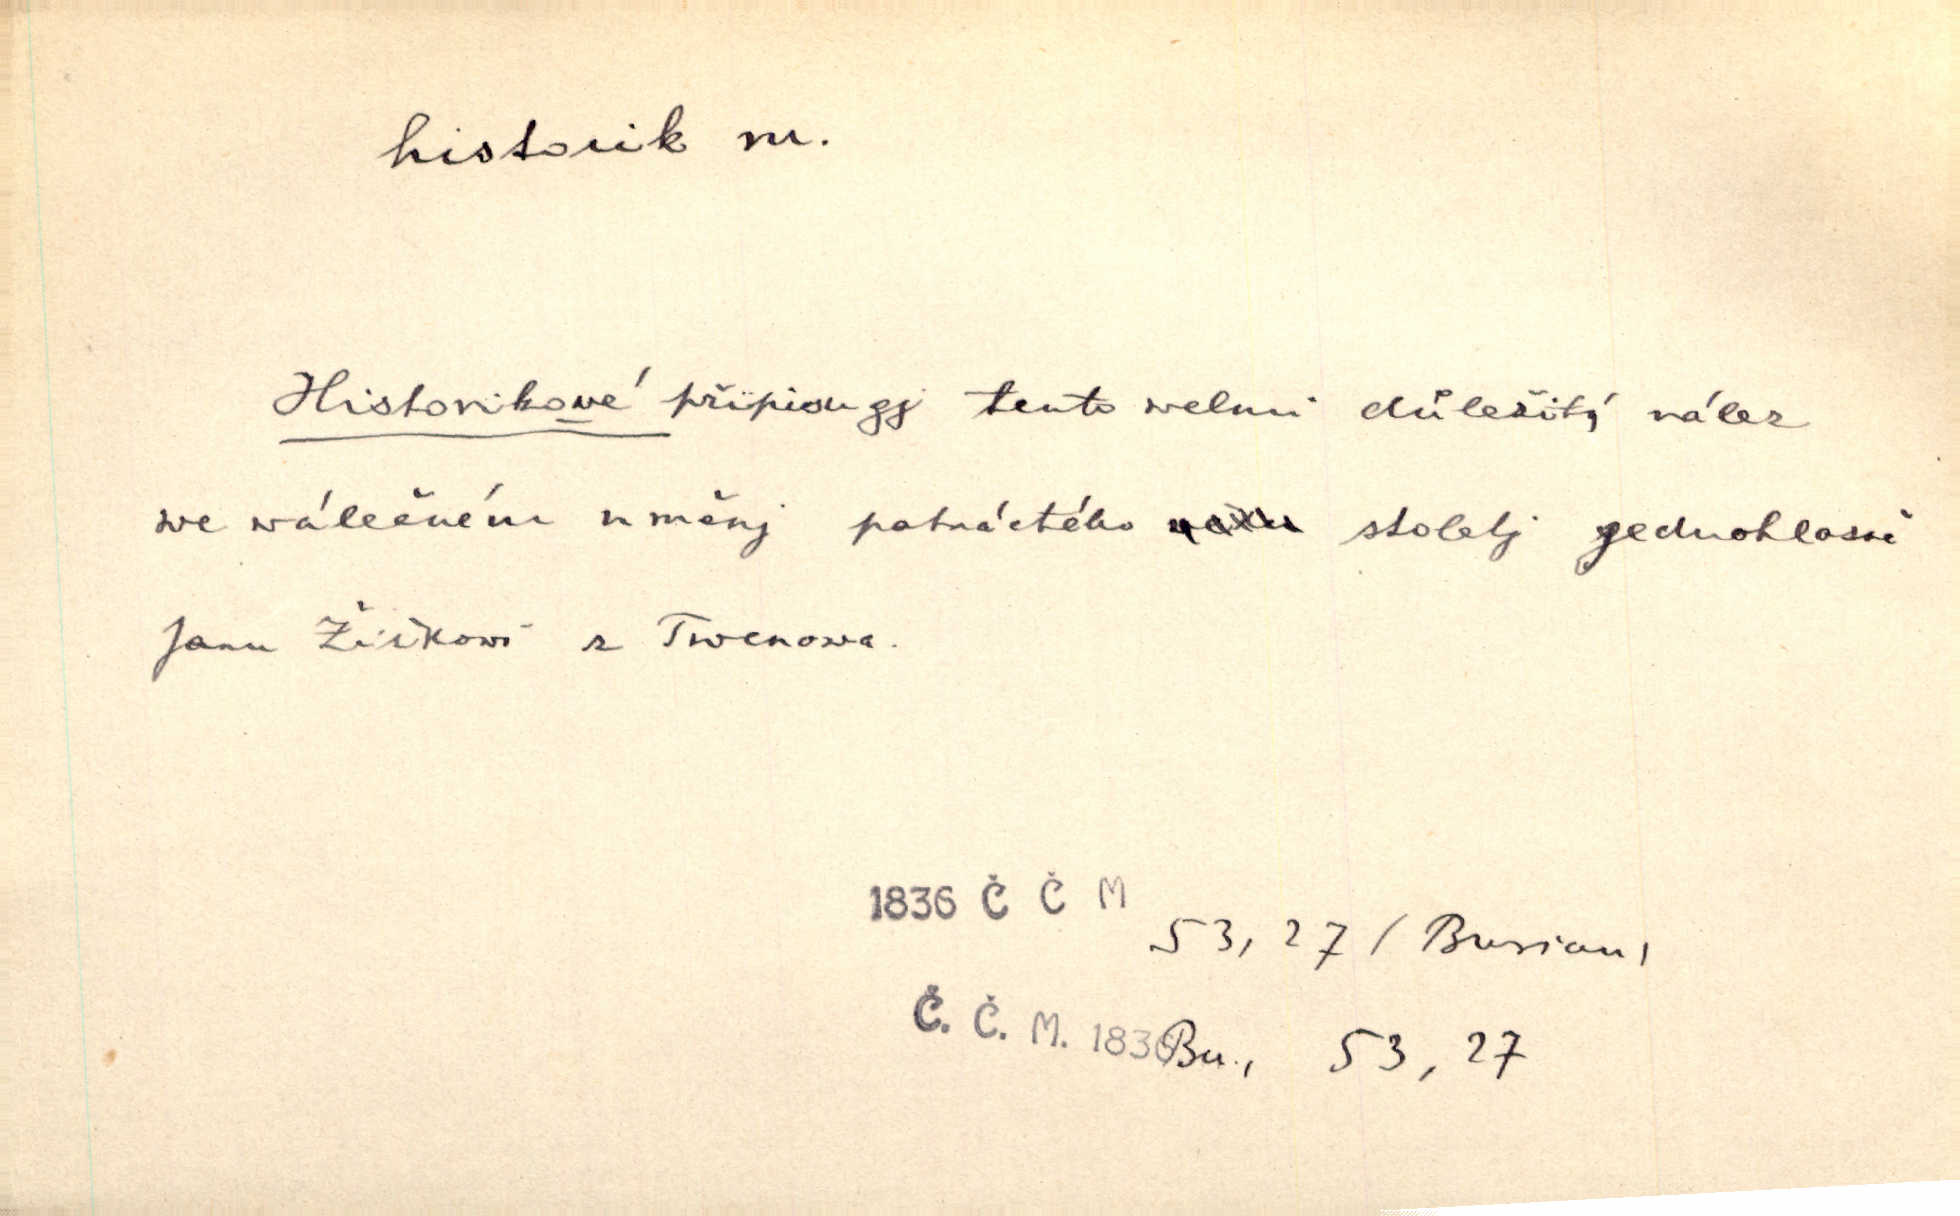 historik m.
Historikowé připisugj tento welmi důležitý nález
we wálečném uměnj patnáctého stoletj gednohlasně
Janu Žižkowi z Trocnowa.
1836 Č Č M
53, 27 / Burian,
Č. Č. M. 1836 Bu., 53, 27